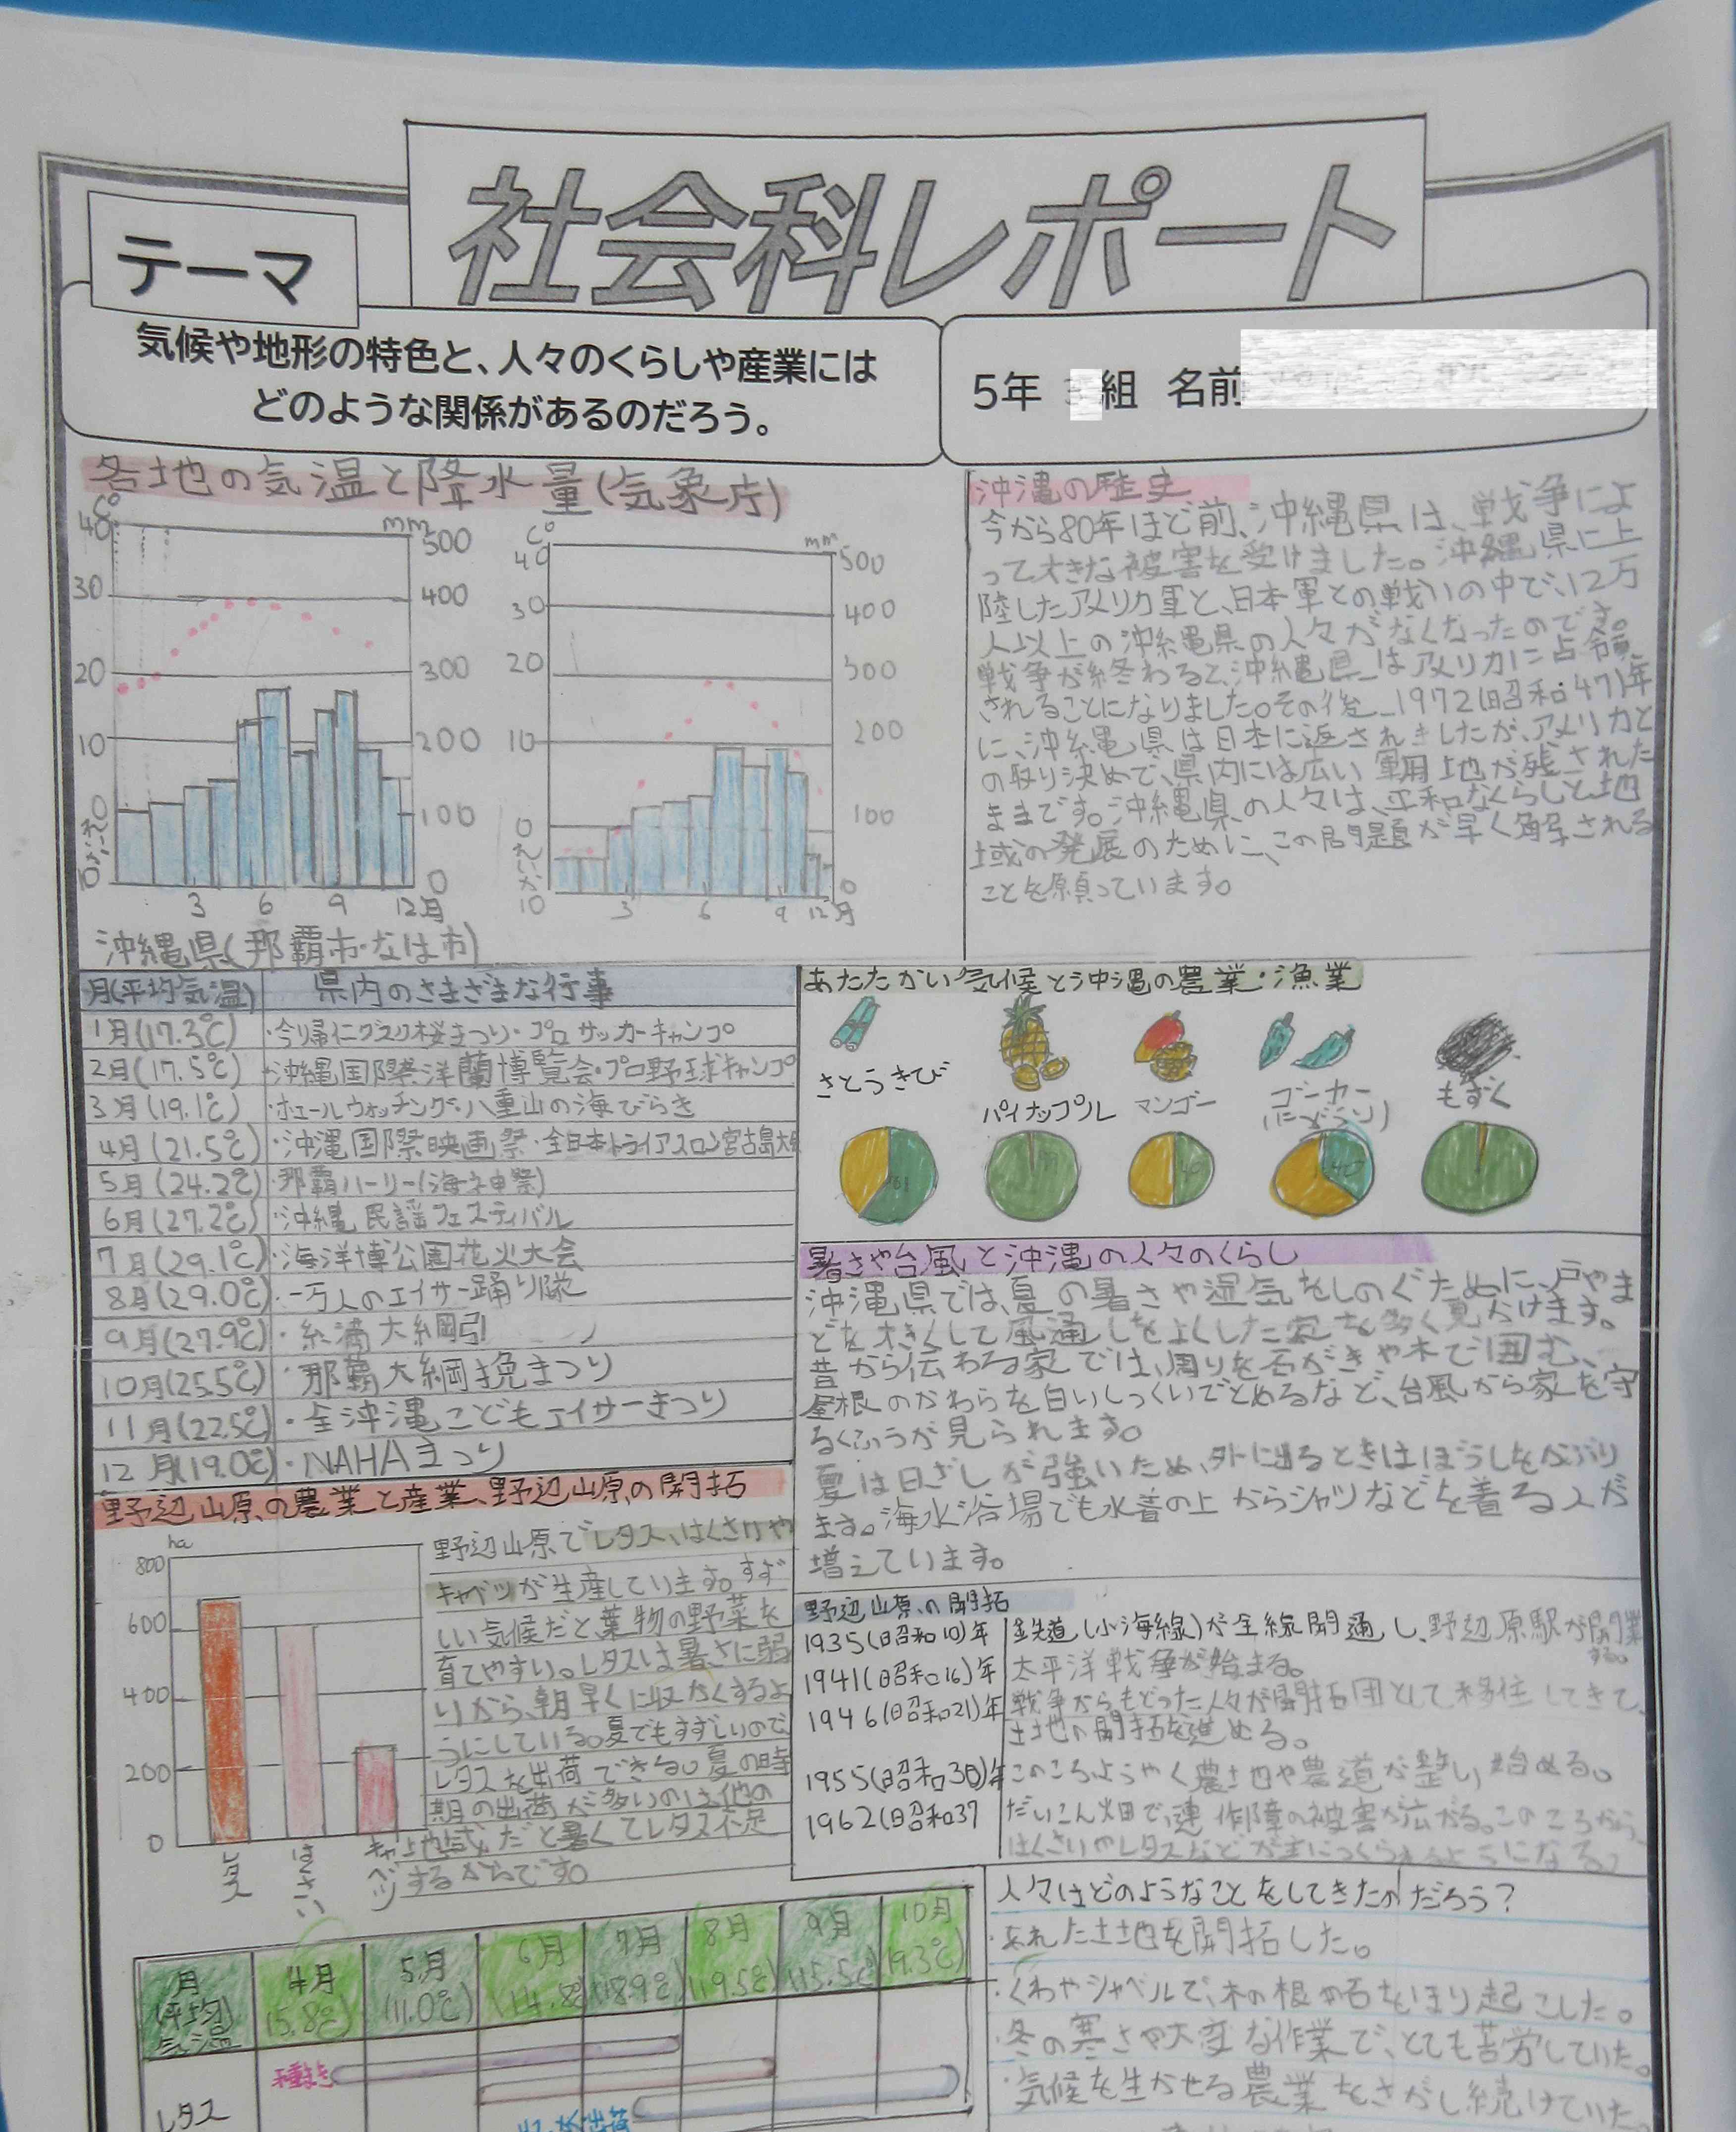 社会科レポート
テーマ
気候や地形の特色と、人々のくらしや産業には
どのような関係があるのだろう。
5年 組 名前
各地の気温と降水量(気象庁)
C°
mm
40
30
20
10
0
れい下
10
500
400
300
200
100
0
3 6 9 12月
C°
mm
40
30
20
10
0
10
500
400
300
200
100
0
3 6 9 12月
沖縄県(那覇市・なは市)
沖縄の歴史
今から80年ほど前、沖縄県は、戦争によ
って大きな被害を受けました。沖縄県に上
陸したアメリカ軍と、日本軍との戦いの中で、12万
人以上の沖縄県の人々がなくなったのです。
戦争が終わると、沖縄県はアメリカに占領
されることになりました。その後、1972(昭和47)年
に、沖縄県は日本に返されましたが、アメリカと
の取り決めで、県内には広い軍用地が残された
ままです。沖縄県の人々は、平和なくらしと地
域の発展のために、この問題が早く解決される
ことを願っています。
月(平均気温) 県内のさまざまな行事
1月(17.3℃) ・今帰仁グスク桜まつり・プロサッカーキャンプ
2月(17.5℃) ・沖縄国際洋蘭博覧会・プロ野球キャンプ
3月(19.1℃) ・ホエールウォッチング・八重山の海びらき
4月(21.5℃) ・沖縄国際映画祭・全日本トライアスロン宮古島大会
5月(24.2℃) ・那覇ハーリー(海神祭)
6月(27.2℃) ・沖縄民謡フェスティバル
7月(29.1℃) ・海洋博公園花火大会
8月(29.0℃) ・一万人のエイサー踊り隊
9月(27.9℃) ・糸満大綱引
10月(25.5℃) ・那覇大綱挽まつり
11月(22.5℃) ・全沖縄こどもエイサーまつり
12月(19.0℃) ・NAHAまつり
あたたかい気候と沖縄の農業・漁業
さとうきび
パイナップル
マンゴー
ゴーヤー
(にがうり)
もずく
暑さや台風と沖縄の人々のくらし
沖縄県では、夏の暑さや湿気をしのぐために、戸やま
どを大きくして風通しをよくした家を多く見かけます。
昔から伝わる家では、周りを石がきや木で囲む、
屋根のかわらを白いしっくいでとめるなど、台風から家を守
るくふうが見られます。
夏は日ざしが強いため、外に出るときはぼうしをかぶり
ます。海水浴場でも水着の上からシャツなどを着る人が
増えています。
野辺山原の農業と産業、野辺山原の開拓
ha
800
600
400
200
0
レタス
はくさい
キャベツ
野辺山原でレタス、はくさいや
キャベツが生産しています。すず
しい気候だと葉物の野菜を
育てやすい。レタスは暑さに弱
いから、朝早くに収かくするよ
うにしている。夏でもすずしいので、
レタスを出荷できる。夏の時
期の出荷が多いのは他の
地域だと暑くてレタス不足
するからです。
野辺山原の開拓
1935(昭和10)年 鉄道(小海線)が全線開通し、野辺原駅が開業する。
1941(昭和16)年 太平洋戦争が始まる。
1946(昭和21)年 戦争からもどった人々が開拓団として移住してきて、
土地の開拓を進める。
1955(昭和30)年 このころようやく農地や農道が整い始める。
1962(昭和37 だいこん畑で、連作障の被害が広がる。このころから、
はくさいやレタスなどが主につくられるようになる。
人々はどのようなことをしてきたのだろう?
・あれた土地を開拓した。
・くわやシャベルで、木の根や石をほり起こした。
・冬の寒さや大変な作業で、とても苦労していた。
・気候を生かせる農業をさがし続けていた。
月(平均)気温 4月(5.8℃) 5月(11.0℃) 6月(14.8℃) 7月(18.9℃) 8月(19.5℃) 9月(15.5℃) 10月(9.3℃)
種まき
レタス